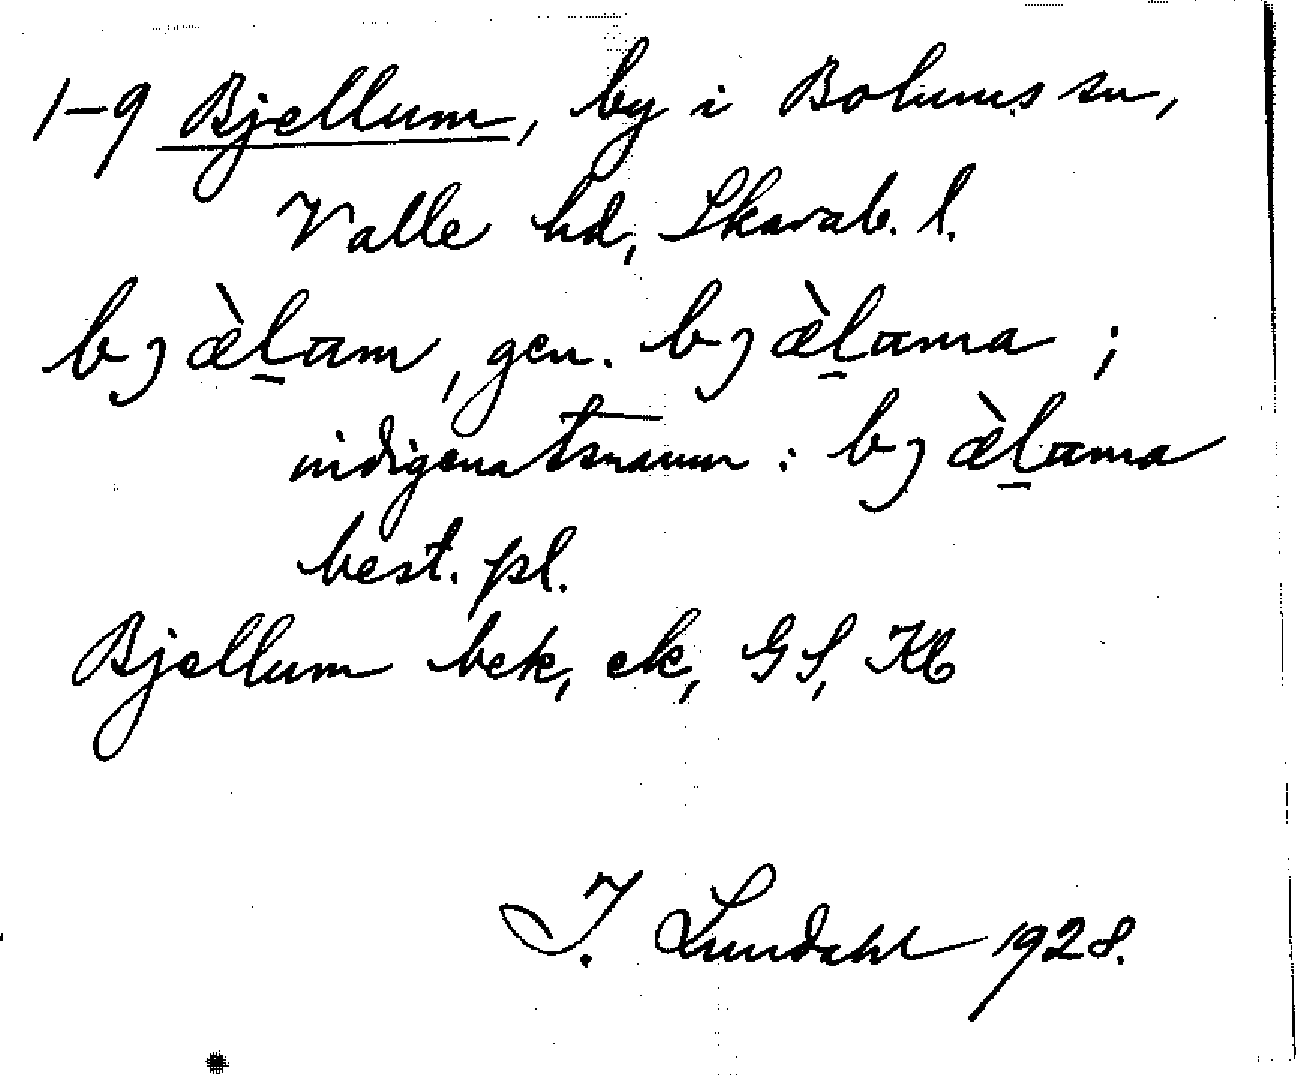 1-9 Bjellum, by i Bolums sn,
Valle hd, Skarab. l.
bjæ̀l̠am, gen. bjæ̀l̠ama ;
indigenatsnamn : bjæ̀l̠ama
best. pl.
Bjellum bek, ek, GS, Kb
I. Lundahl 1928.